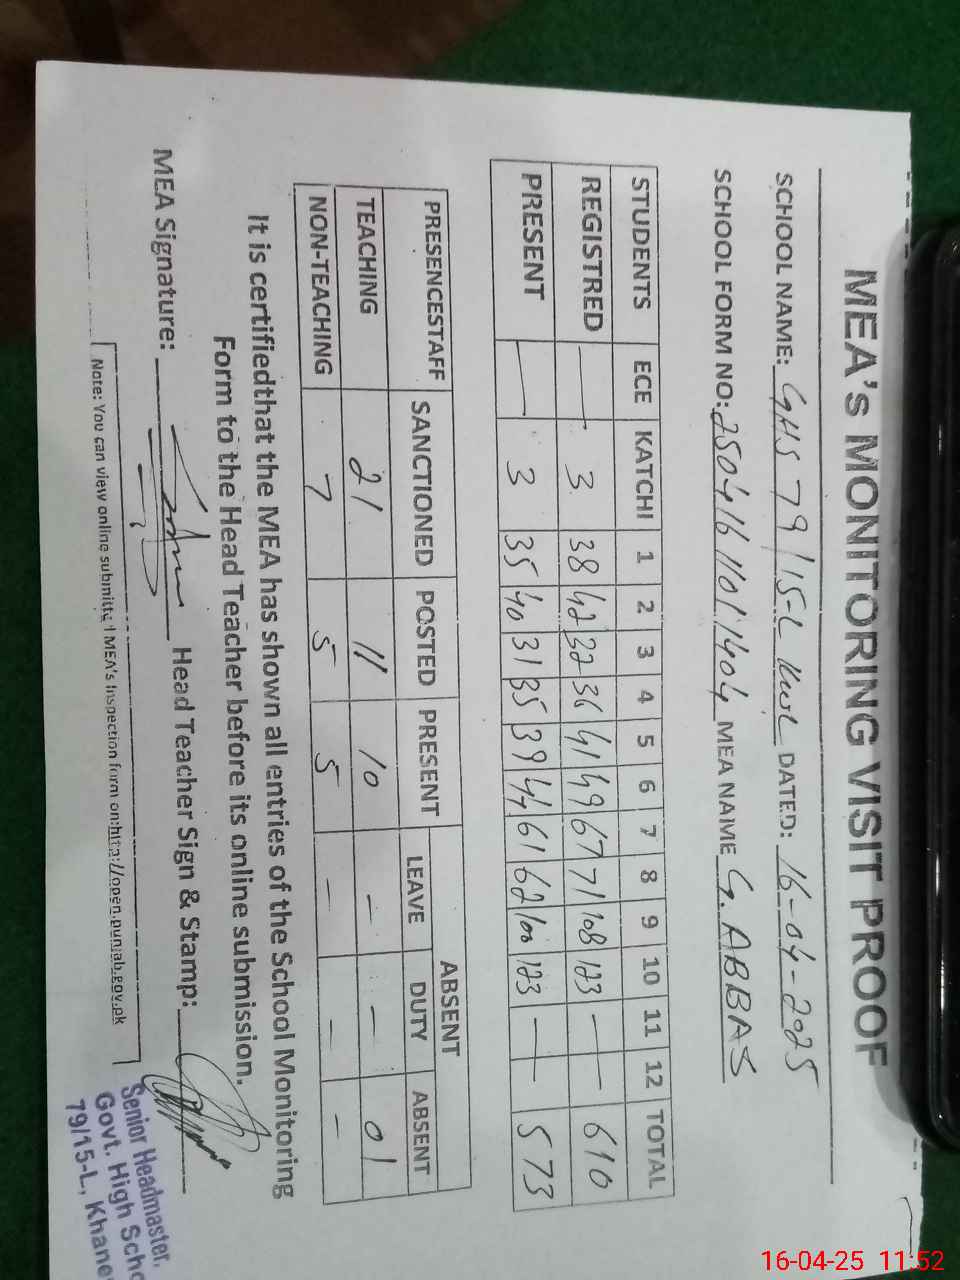 MEA's MONITORING VISIT PROOF
SCHOOL NAME: GHS 79/15-L KWL DATED: 16-04-2025
SCHOOL FORM NO: 250416 1101 1404 MEA NAME G. ABBAS
STUDENTS ECE KATCHI 1 2 3 4 5 6 7 8 9 10 11 12 TOTAL
REGISTRED — 3 38 42 32 36 41 49 67 71 108 123 — — 610
PRESENT — 3 35 40 31 35 39 44 61 62 100 123 — — 573
ABSENT
PRESENCESTAFF SANCTIONED POSTED PRESENT LEAVE DUTY ABSENT
TEACHING 21 11 10 — — 01
NON-TEACHING 7 5 5 — — —
It is certifiedthat the MEA has shown all entries of the School Monitoring
Form to the Head Teacher before its online submission.
MEA Signature: Head Teacher Sign & Stamp:
Senior Headmaster.
Govt. High Scho
79/15-L, Khane
Note: You can view online submitted MEA's Inspection form on:http://open.punjab.gov.pk
16-04-25 11:52